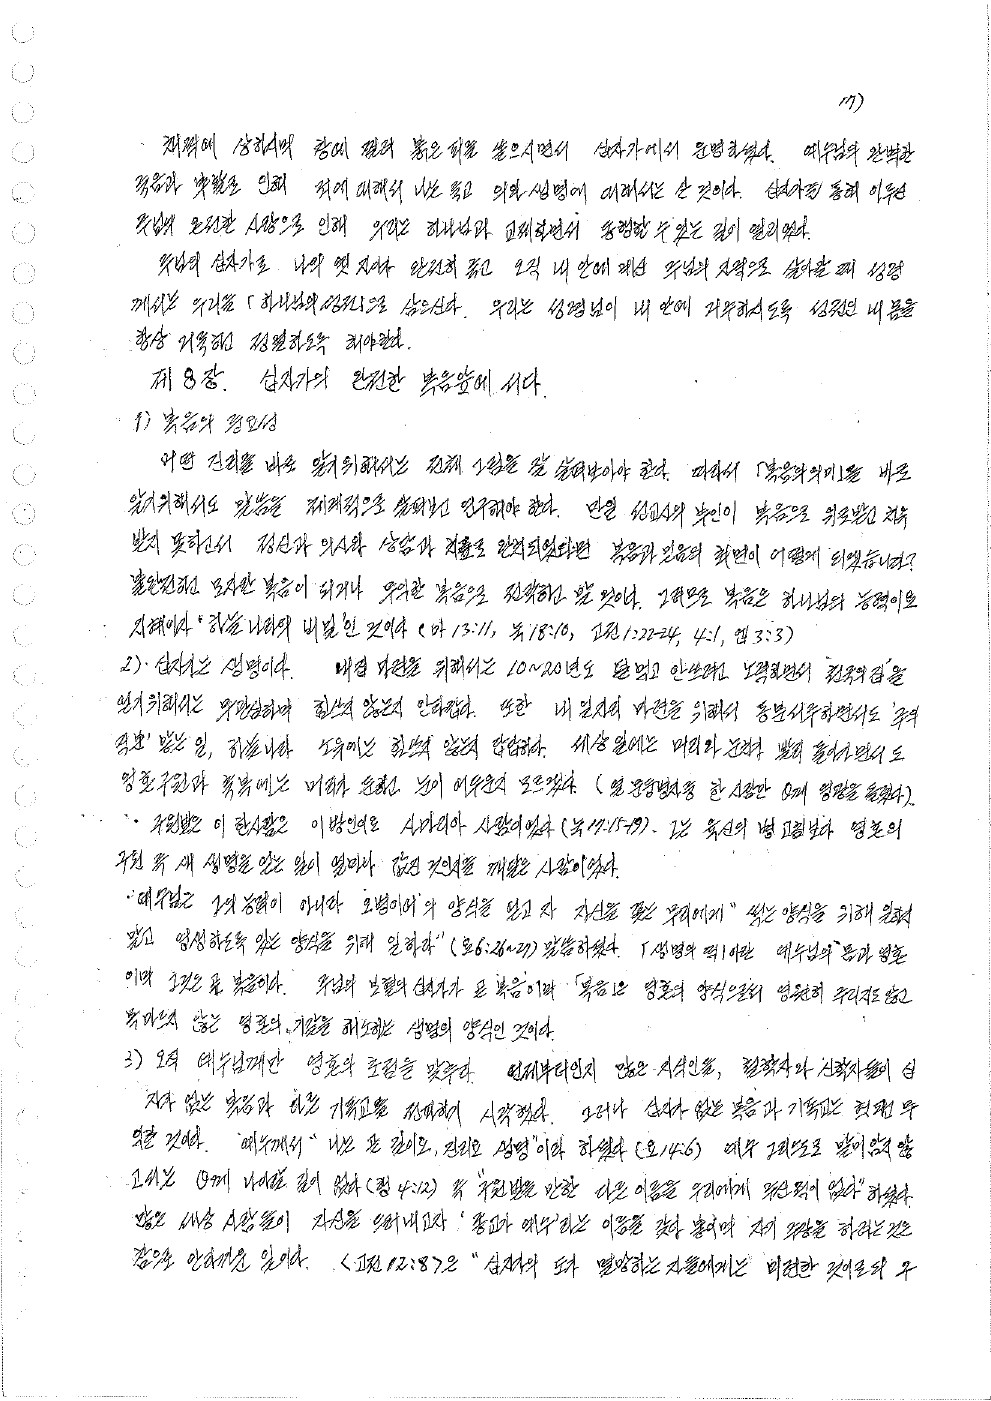 17)
채찍에 상하시며 창에 찔려 붉은 피를 쏟으시면서 십자가에서 운명하셨다. 예수님의 완벽한
죽음과 부활로 인해 죄에 대해서 나는 죽고 의와 생명에 대해서는 산 것이다. 십자가를 통해 이루신
주님의 온전한 사랑으로 인해 우리는 하나님과 교제하면서 동행할 수 있는 길이 열리었다.
주님의 십자가로 나의 옛 자아가 완전히 죽고 오직 내 안에 계신 주님의 자격으로 살아갈 때 성령
께서는 우리를 「하나님의 성전」으로 삼으신다. 우리는 성령님이 내 안에 거주하시도록 성전인 내 몸을
항상 거룩하고 정결하도록 해야한다.
제 8 장. 십자가의 완전한 복음앞에 서다.
1) 복음의 중요성
어떤 진리를 바로 알기위해서는 전체 그림을 잘 살펴보아야 한다. 따라서 「복음의 의미」을 바로
알기위해서도 말씀을 체계적으로 살펴보고 연구해야 한다. 만일 선교사의 부인이 복음으로 위로받고 치유
받지 못하고서 정신과 의사와 상담과 치료로 완치되었다면 복음과 믿음의 화면이 어떻게 되었습니까?
불완전하고 모자란 복음이 되거나 무의한 복음으로 전락하고 말 것이다. 그러므로 복음은 하나님의 능력이요
지혜이자 "하늘나라의 비밀"인 것이다 (마 13:11, 눅 18:10, 고전 1:22-24, 4:1, 엡 3:3)
2). 십자가는 생명이다. 내집 마련을 위해서는 10~20년도 덜 먹고 안쓰려고 노력하면서 "천국의 집"을
얻기위해서는 무관심하며 힘쓰지 않는지 안타깝다. 또한 내 일자리 마련을 위해서 동분서주하면서도 '주의
직분' 받는 일, 하늘나라 소유에는 힘쓰지 않는지 답답하다. 세상 일에는 머리와 눈치가 빨리 돌아가면서도
영혼구원과 축복에는 머리가 둔하고 눈이 어두운지 모르겠다. (열 문둥병자중 한 사람만 주께 영광을 돌렸다).
· 구원받은 이 한사람은 이방인이요 사마리아 사람이었다 (눅 17:15-19). 그는 육신의 병 고침보다 영혼의
구원 즉 새 생명을 얻는 일이 얼마나 값진 것인지를 깨달은 사람이었다.
· 예수님은 그의 능력이 아니라 오병이어의 양식을 얻고자 자신을 찾는 무리에게 "썩는 양식을 위해 일하지
말고 영생하도록 있는 양식을 위해 일하라" (요 6:26~27) 말씀하셨다. 「생명의 떡」이란 예수님의 몸과 영혼
이며 그것은 곧 복음이다. 주님의 보혈의 십자가가 곧 복음이며 「복음」은 영혼의 양식으로서 영원히 주리지도 않고
목마르지 않는 영혼의 기갈을 해소하는 생명의 양식인 것이다.
3) 오직 예수님께만 영혼의 초점을 맞추라. 언제부터인지 많은 지식인들, 철학자와 신학자들이 십
자가 없는 복음과 기독교를 전파하기 시작했다. 그러나 십자가 없는 복음과 기독교는 전혀 무
의할 것이다. 예수께서 "나는 곧 길이요, 진리요 생명"이라 하셨다 (요 14:6) 예수 그리스도로 말미암지 않
고서는 주께 나아갈 길이 없다 (행 4:12) 즉 "구원받을 만한 다른 이름을 우리에게 주신 적이 없다" 하였다.
많은 세상 사람들이 자신을 드러내고자 '종교가 예수'라는 이름을 갖다 붙이며 자기 주장을 하려는 것은
참으로 안타까운 일이다. <고전 12:8>은 "십자가의 도가 멸망하는 자들에게는 미련한 것이로되 구